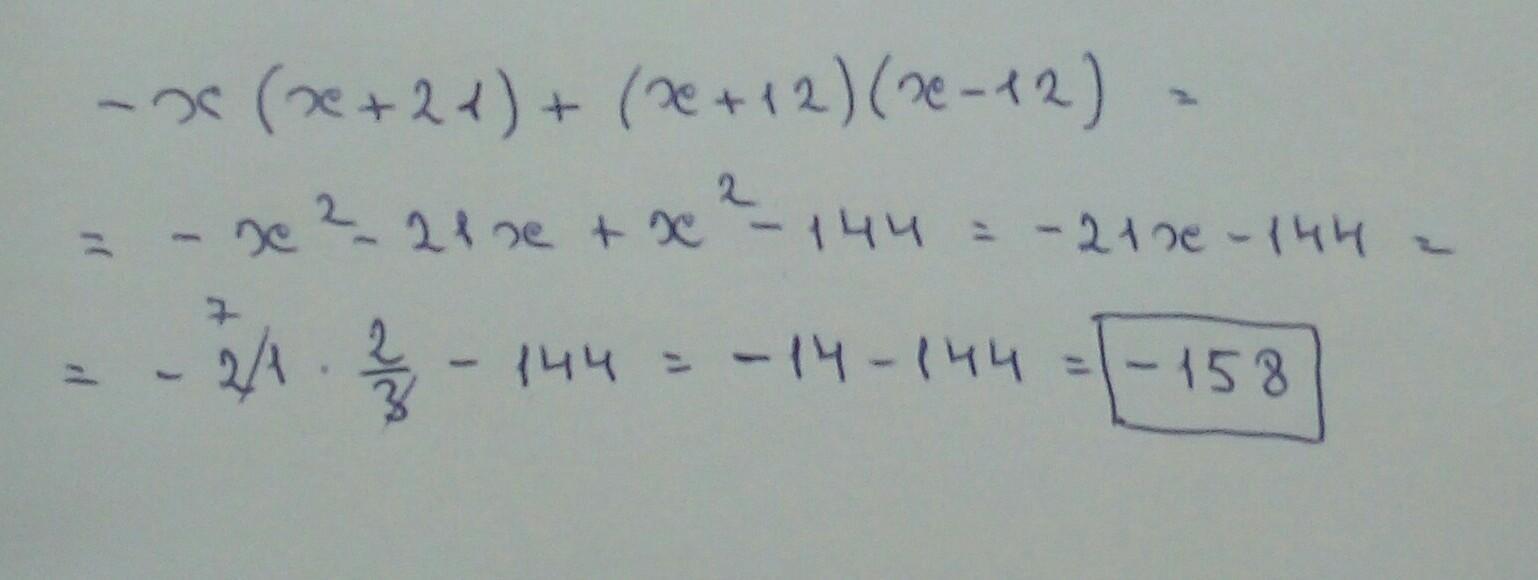 -x(x+21)+(x+12)(x-12) =
= -x²-21x+x²-144 = -21x-144 =
= -2̸1̸⁷ · 2/3̸ - 144 = -14-144 = -158